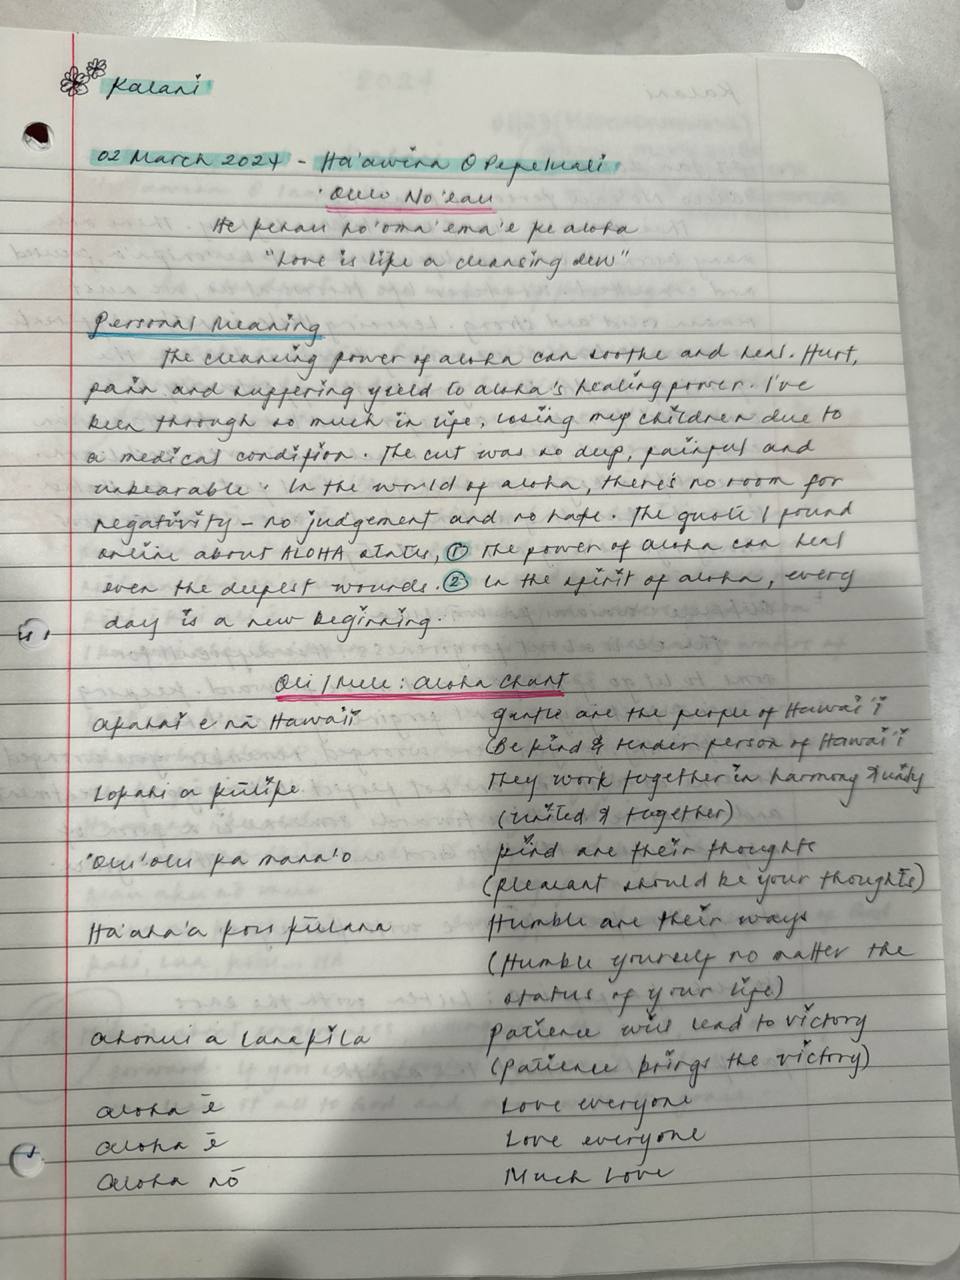 Kalani
02 March 2024 - Ha'awina O Pepeluali
'Ōlelo No'eau
He kehau ho'oma'ema'e ke aloha
"Love is like a cleansing dew"
Personal Meaning
The cleansing power of aloha can soothe and heal. Hurt,
pain and suffering yield to aloha's healing power. I've
been through so much in life, losing my children due to
a medical condition. The cut was so deep, painful and
unbearable. In the world of aloha, there's no room for
negativity - no judgement and no hate. The quote I found
online about ALOHA states, ① The power of aloha can heal
even the deepest wounds. ② In the spirit of aloha, every
day is a new beginning.
Oli / Mele : Aloha Chant
Akahai e nā Hawaii
Gentle are the people of Hawai'i
(Be kind & tender person of Hawai'i
Lokahi a kūlike
They work together in harmony & unity
(united & together)
'Olu'olu ka mana'o
Kind are their thoughts
(pleasant should be your thoughts)
Ha'aha'a kou kūlana
Humble are their ways
(Humble yourself no matter the
status of your life)
Ahonui a lanakila
Patience will lead to victory
(Patience brings the victory)
Aloha ē
Love everyone
Aloha ē
Love everyone
Aloha nō
Much Love